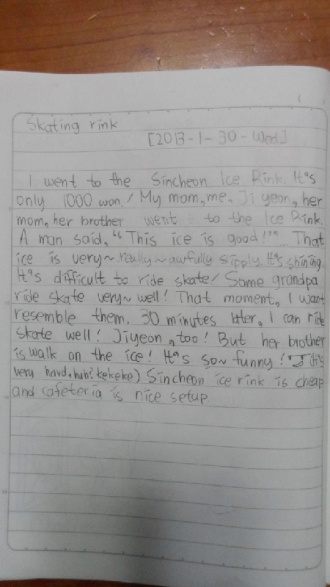 Skating rink
[2013-1-30-Wed]
I went to the Sincheon Ice Rink. It's
only 1000 won! My mom, me, Ji yeon, her
mom, her brother went to the Ice Rink
A man said, "This ice is good!" That
ice is very~ really~ awfully slipply. It's shining
It's difficult to ride skate! Some grandpa
ride skate very~ well! That moment, I want
resemble them. 30 minutes later, I can ride
skate well! Jiyeon, too! But her brother
is walk on the ice! It's so~ funny! It's
very hard, huh? kekeke) Sincheon ice rink is cheap
and cafeteria is nice setup